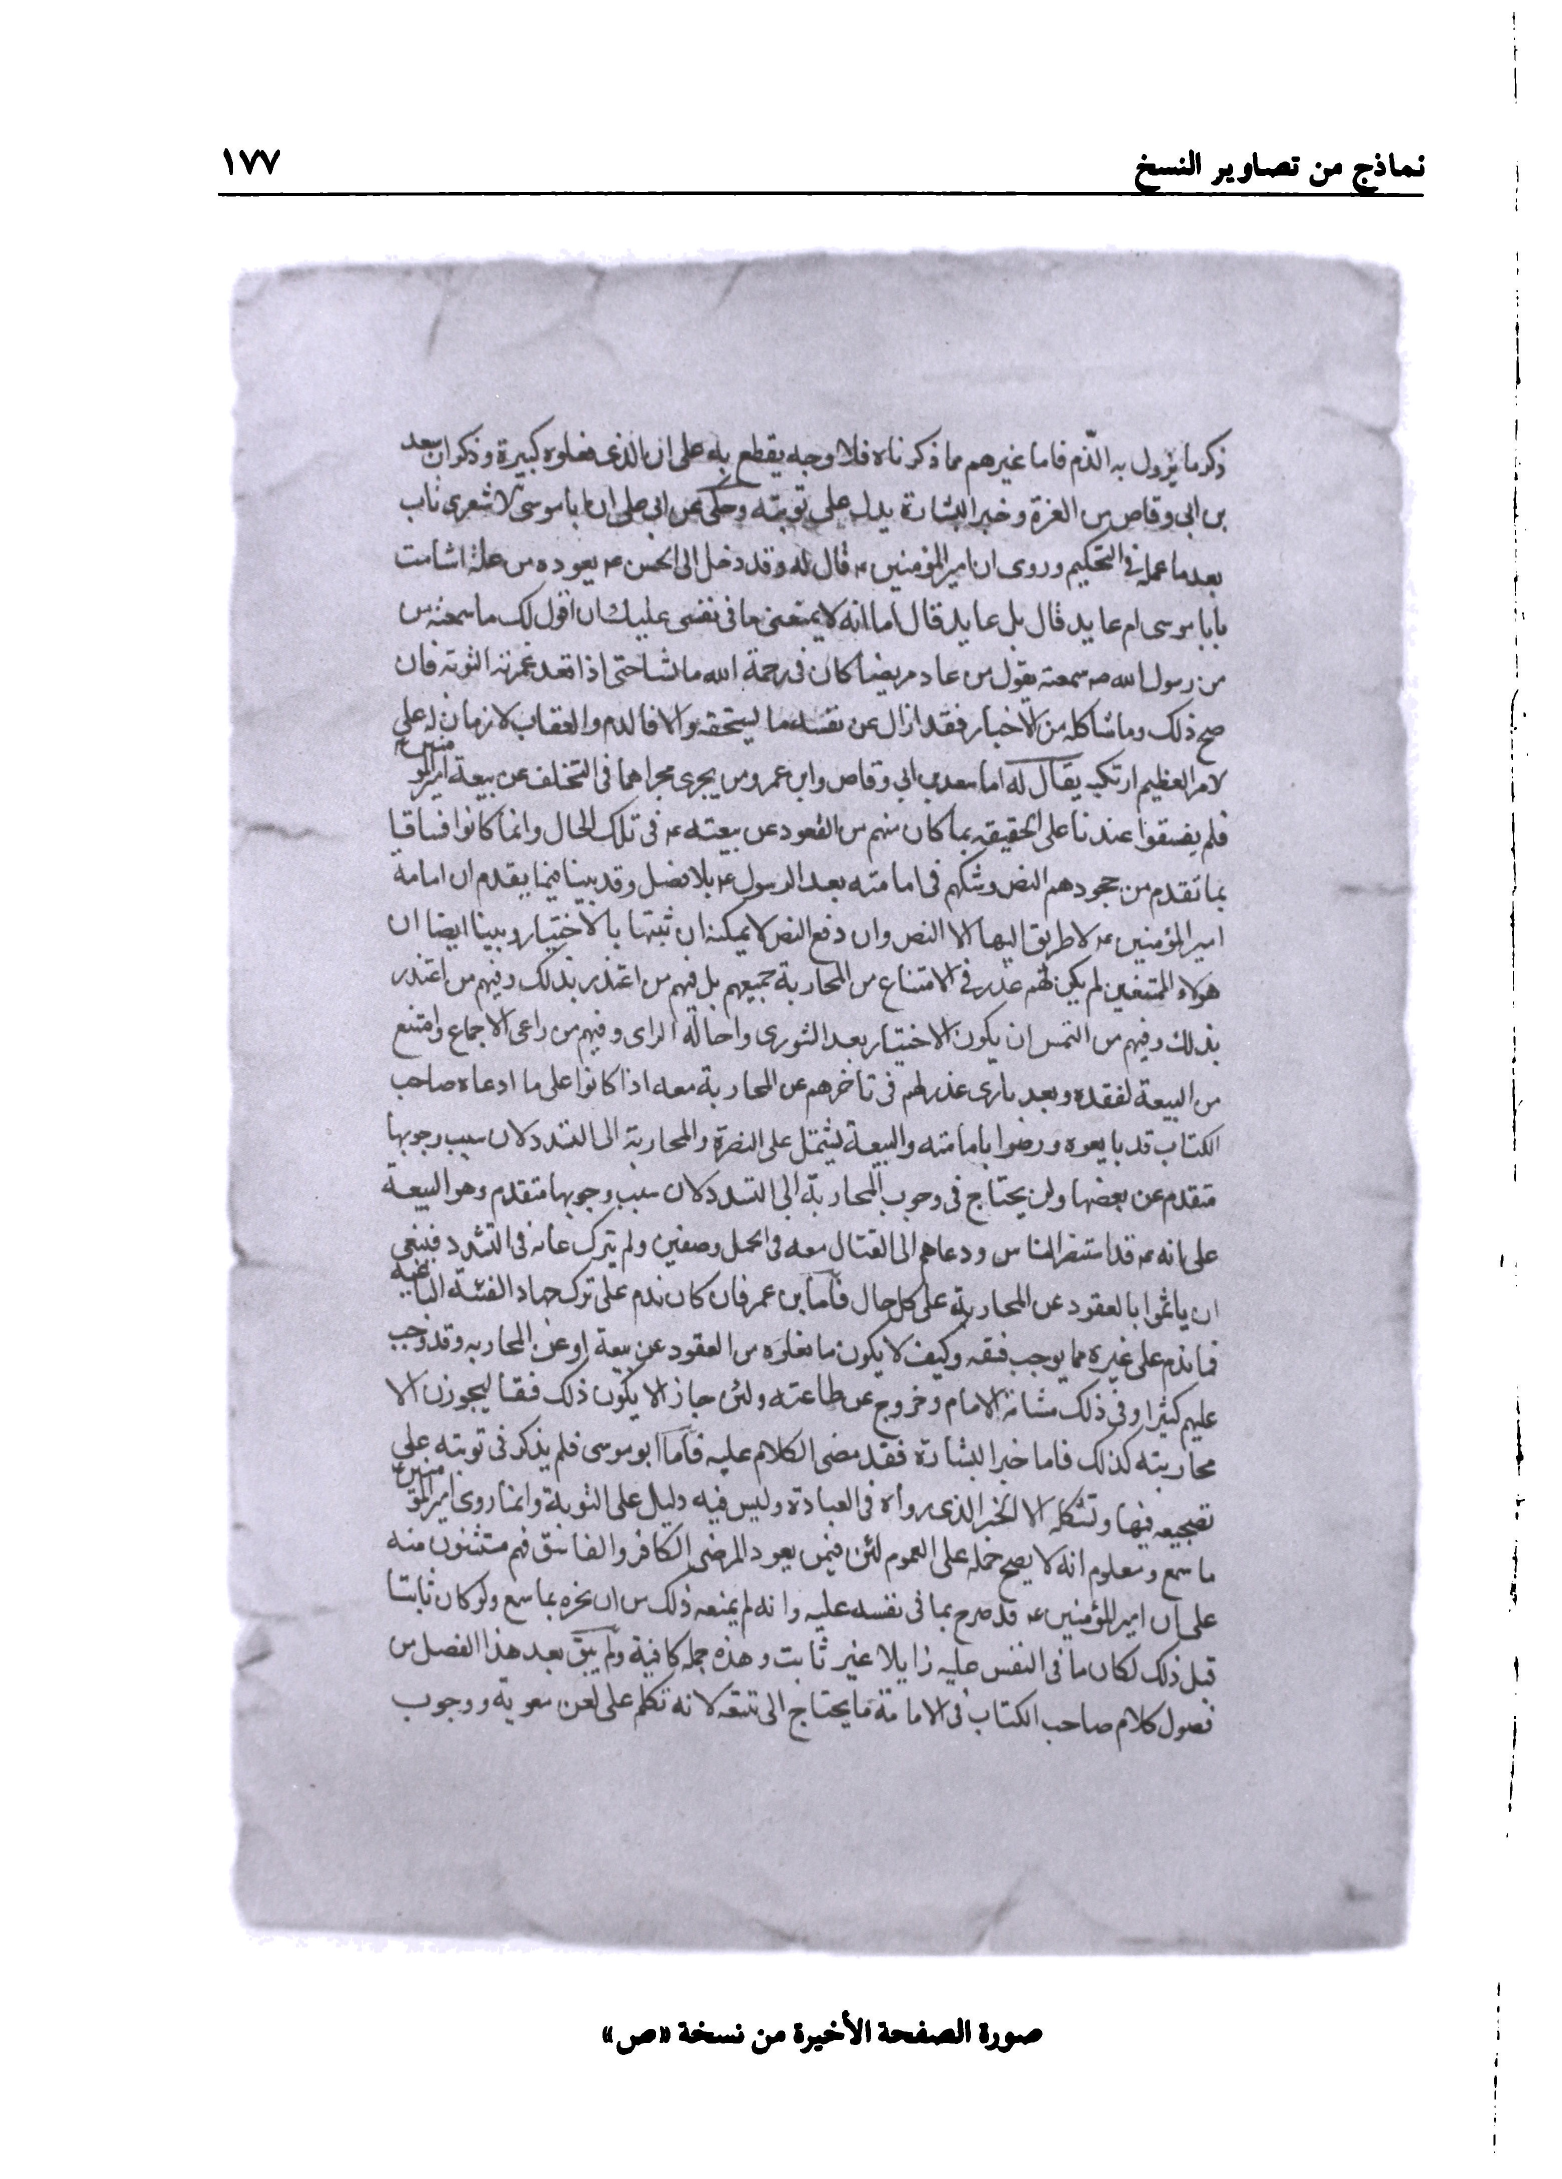 نماذج من تصاوير النسخ ١٧٧
ذكر ما يزول به الذم فاما غيرهم مما ذكرناه فلا وجه يقطع به على ان الذى فعلوه كبيرة وذكر ان سعد
بن ابى وقاص من الغزة وخبر البشارة يدل على توبته وحكى عن ابى على ان ابا موسى الاشعرى تاب
بعد ما عمله فى التحكيم وروى ان امير المؤمنين ع قال له وقد دخل الى الحسن ع يعوده من علة اشامت
يا با موسى ام عايد قال بل عايد قال اما انه لا يمنعنى ما فى نفسى عليك ان اقول لك ما سمعته من
من رسول الله صه سمعته يقول من عاد مريضا كان فى رحمة الله ما شا حتى اذا قعد غمرته التوبة فان
صح ذلك وما شاكله من الاخبار فقد ازال عن نفسه ما يستحقه والا فالذم والعقاب لازمان له على
لامر العظيم ارتكبه يقال له اما سعد بن ابى وقاص وابن عمر ومن يجرى مجراهما فى التخلف عن بيعة امير المؤمنين ع
فلم يفسقوا عندنا على الحقيقة بما كان منهم من القعود عن بيعته ع فى تلك الحال وانما كانوا فساقا
بما تقدم من جحودهم النص وشكهم فى امامته بعد الرسول ع بلا فصل وقد بينا فيما يقدم ان امامة
امير المؤمنين ع لا طريق اليها الا النص وان دفع النص لا يمكنه ان ثبتها بالاختيار وبينا ايضا ان
هولاء الممتنعين لم يكن لهم عذر فى الامتناع من المحاربة جميعهم بل فيهم من اعتذر بذلك وفيهم من اعتذر
بذلك وفيهم من التمس ان يكون الاختيار بعد الشورى واحالة الراى وفيهم من راعى الاجماع وامتنع
من البيعة لفقده وبعد فاى عذر لهم فى تاخرهم عن المحاربة معه اذا كانوا على ما ادعاه صاحب
الكتاب قد بايعوه ورضوا بامامته والبيعة يشتمل على النصرة والمحاربة الى التشدد لان سبب وجوبها
متقدم عن بعضها ولن يحتاج فى وجوب المحاربة الى التشدد لان سبب وجوبها متقدم وهو البيعة
على انه ع قد استنفر الناس ودعاهم الى القتال معه فى الجمل وصفين ولم يترك غاية فى التشدد فينبغى
ان ياثموا بالعقود عن المحاربة على كل حال فاما بن عمر فان كان ندم على ترك جهاد الفئة الباغية
فما ندم على غيره مما يوجب فسقه وكيف لا يكون ما فعلوه من العقود عن بيعة او عن المحاربه وقد وجب
عليهم كثيرا وفى ذلك مشاقة الامام وخروج عن طاعته ولئن جاز الا يكون ذلك فسقا ليجوزن الا
محاربته كذلك فاما خبر البشارة فقد مضى الكلام عليه فاما ابو موسى فلم يذكر فى توبته على
تصحيحه فيها وتشكله الا الخبر الذى رواه فى العيادة وليس فيه دليل على التوبة وانما روى امير المؤمنين ع
ما سمع ومعلوم انه لا يصح حمله على العموم لئن فيمن يعود المرضى الكافر والفاسق فهم مستثنون منه
على ان امير المؤمنين ع قد صرح بما فى نفسه عليه وانه لم يمنعه ذلك من ان يخبره بما سمع ولو كان ثابتا
قبل ذلك لكان ما فى النفس عليه زايلا غير ثابت وهذه جملة كافية ولم يبق بعد هذا الفصل من
فصول كلام صاحب الكتاب فى الامامة ما يحتاج الى تتبعه لانه تكلم على لعن معوية ووجوب
صورة الصفحة الأخيرة من نسخة «ص»